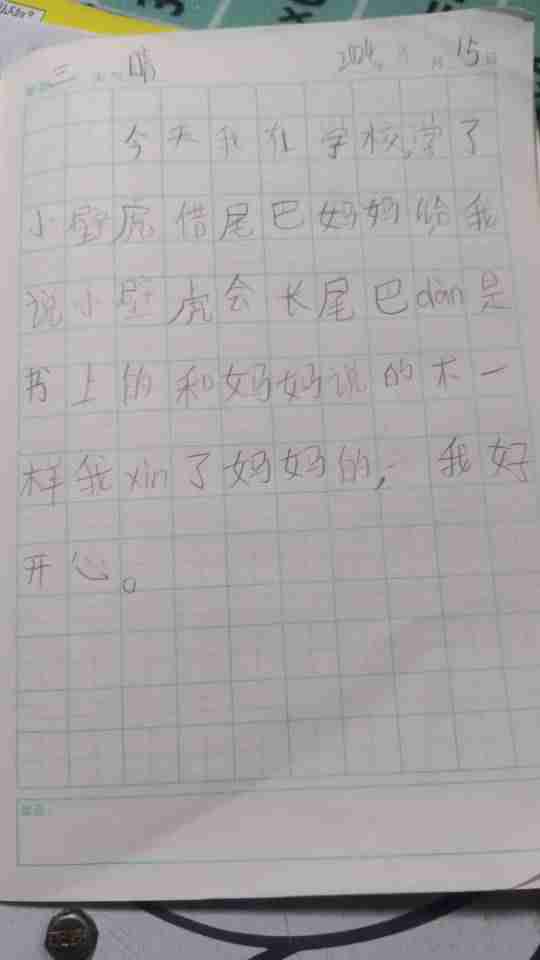 三 晴 2024年 月 15日
今天我在学校,学了
小壁虎借尾巴妈妈给我
说小壁虎会长尾巴dàn是
书上的和妈妈说的不一
样我xìn了妈妈的,我好
开心。